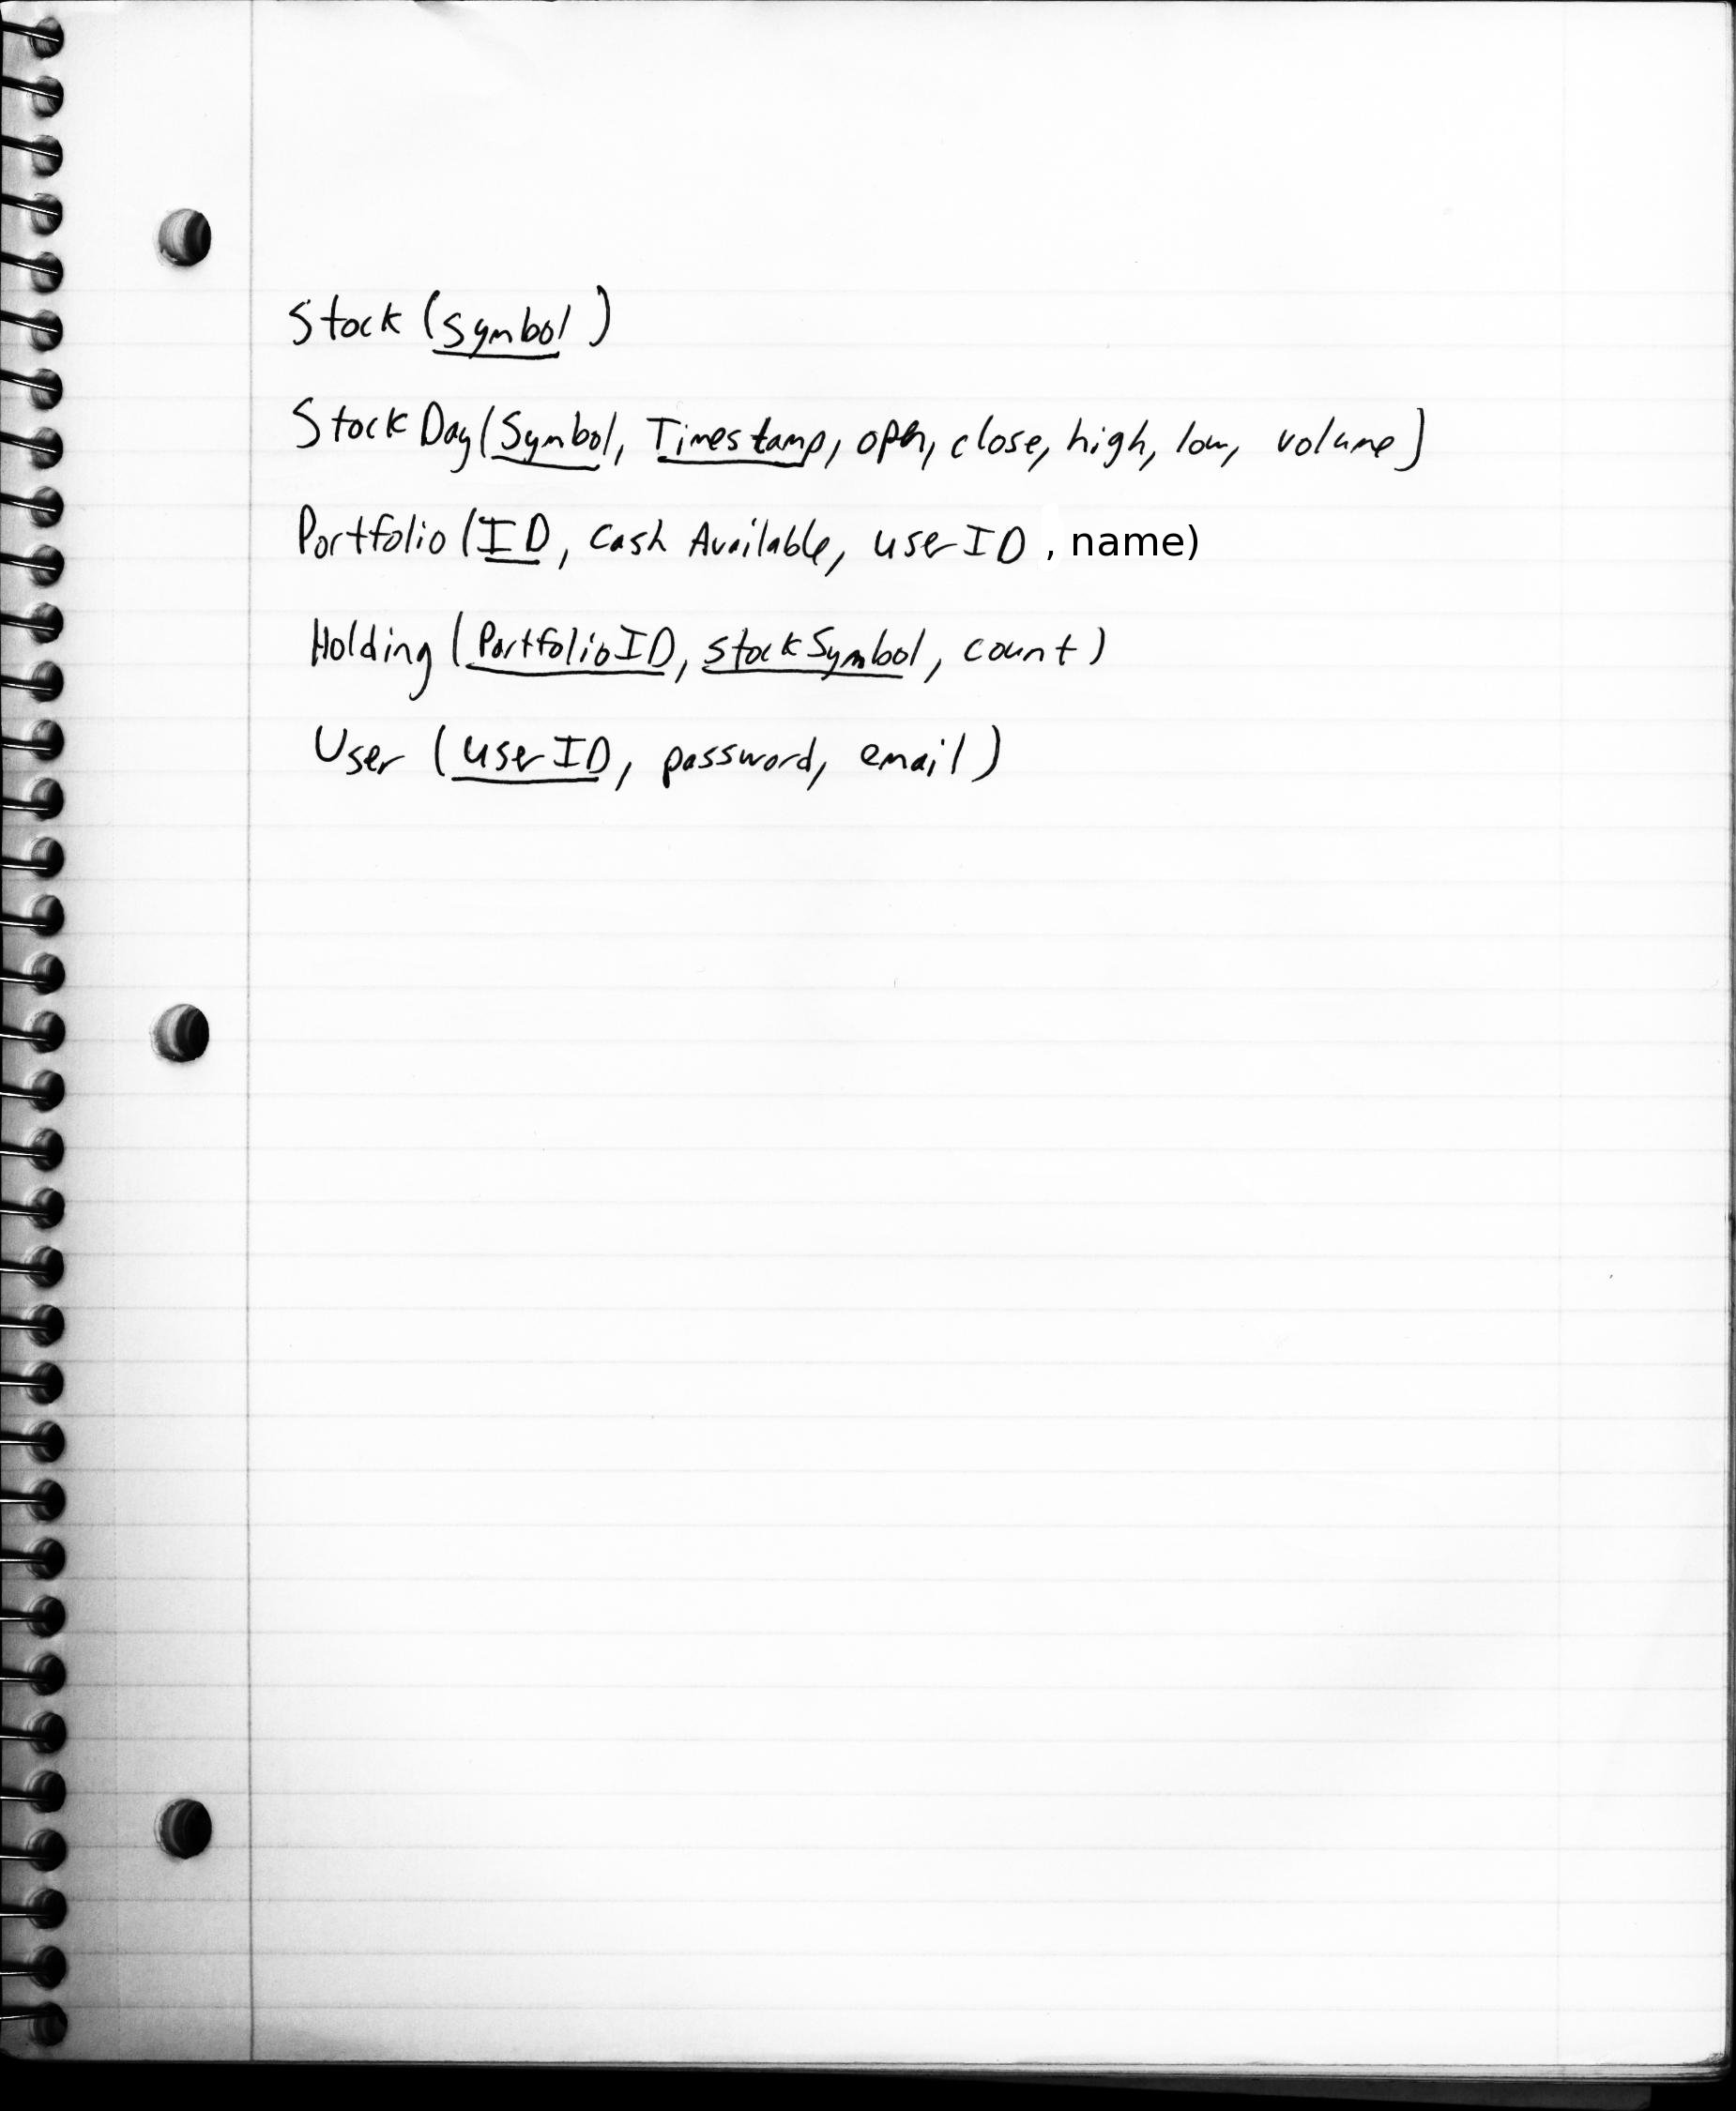 Stock (symbol)
StockDay(Symbol, Timestamp, open, close, high, low, volume)
Portfolio (ID, Cash Available, userID , name)
Holding (PortfolioID, stockSymbol, count)
User (userID, password, email)